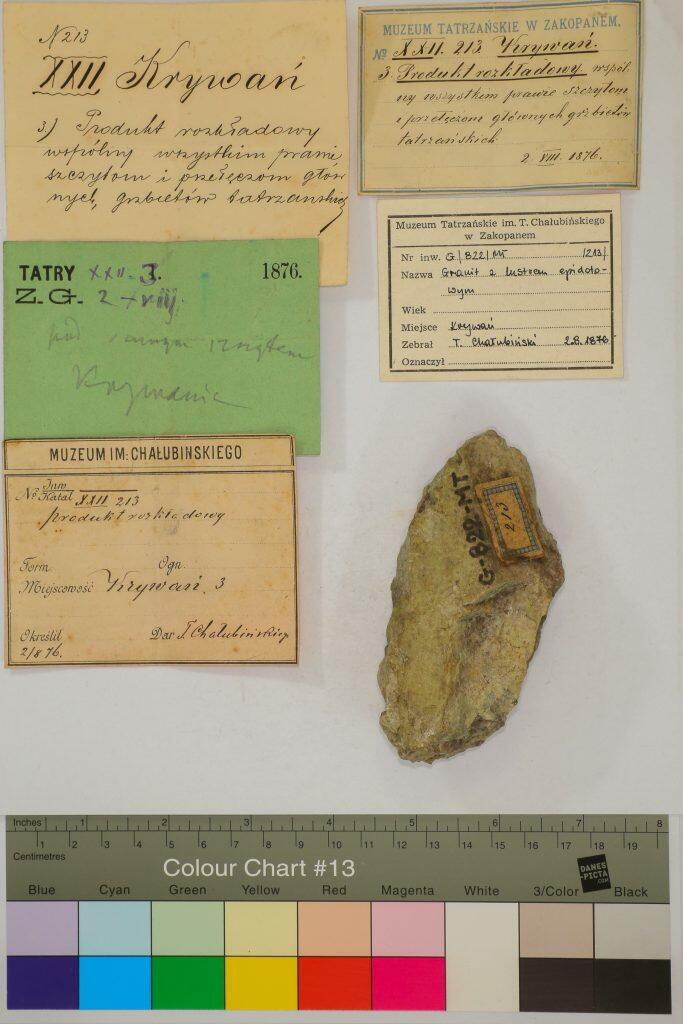 N 213
XXII Krywań
3.) Produkt rozkładowy
wspólny wszystkim prawie,
szczytom i przełęczom głów
nych, grzbietów tatrzańskich
MUZEUM TATRZAŃSKIE W ZAKOPANEM.
No XXII. 213. Krywań.
3. Produkt rozkładowy wspól-
ny wszystkim prawie szczytom
i przełęczom głównych grzbietów
tatrzańskich
2. VIII. 1876.
Muzeum Tatrzańskie im. T. Chałubińskiego
w Zakopanem
Nr inw. G/822/MT /213/
Nazwa Granit z lustrem epidoto-
wym
Wiek
Miejsce Krywań
Zebrał T. Chałubiński 2.8.1876
Oznaczył
TATRY XXII. 3. 1876.
Z. G. 2 - VIII.
pod samym szczytem
Krywania
MUZEUM IM: CHAŁUBINSKIEGO
No Inw. Katal XXII 213
produkt rozkładowy
Form. Ogn.
Miejscowość Krywań. 3
Określił Dar T. Chałubińskiego
2/8 76.
G-822-MT
213
Inches 1 2 3 4 5 6 7 8
Centimetres 1 2 3 4 5 6 7 8 9 10 11 12 13 14 15 16 17 18 19
Colour Chart #13
DANES
-PICTA
.COM
Blue Cyan Green Yellow Red Magenta White 3/Color Black